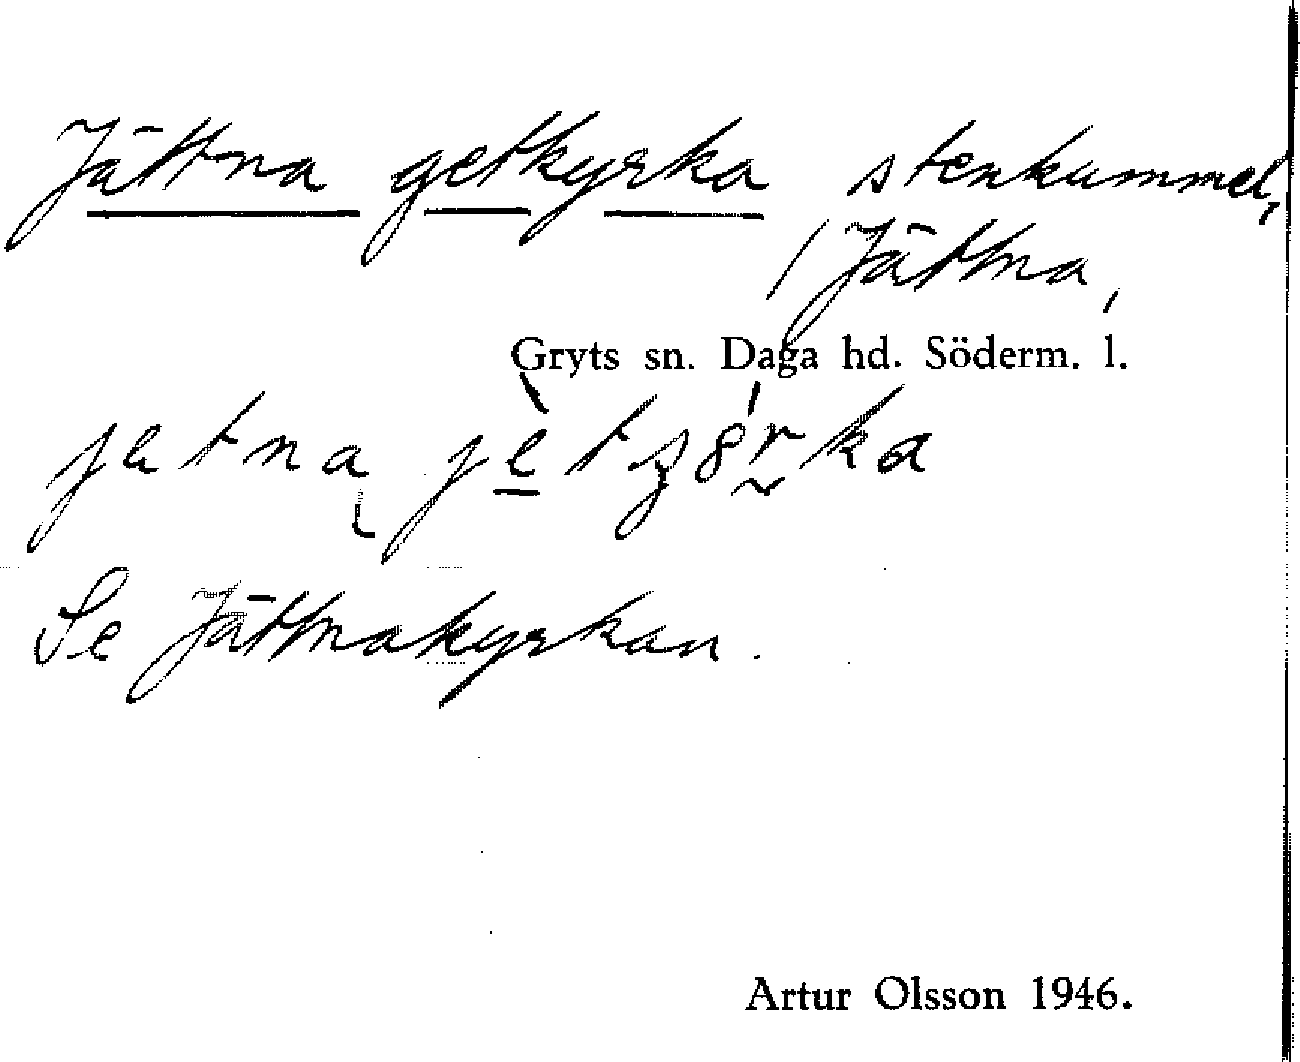 Jättna getkyrka stenkummel,
/ Jättna,
Gryts sn. Daga hd. Söderm. l.
Se Jättnakyrkan.
Artur Olsson 1946.